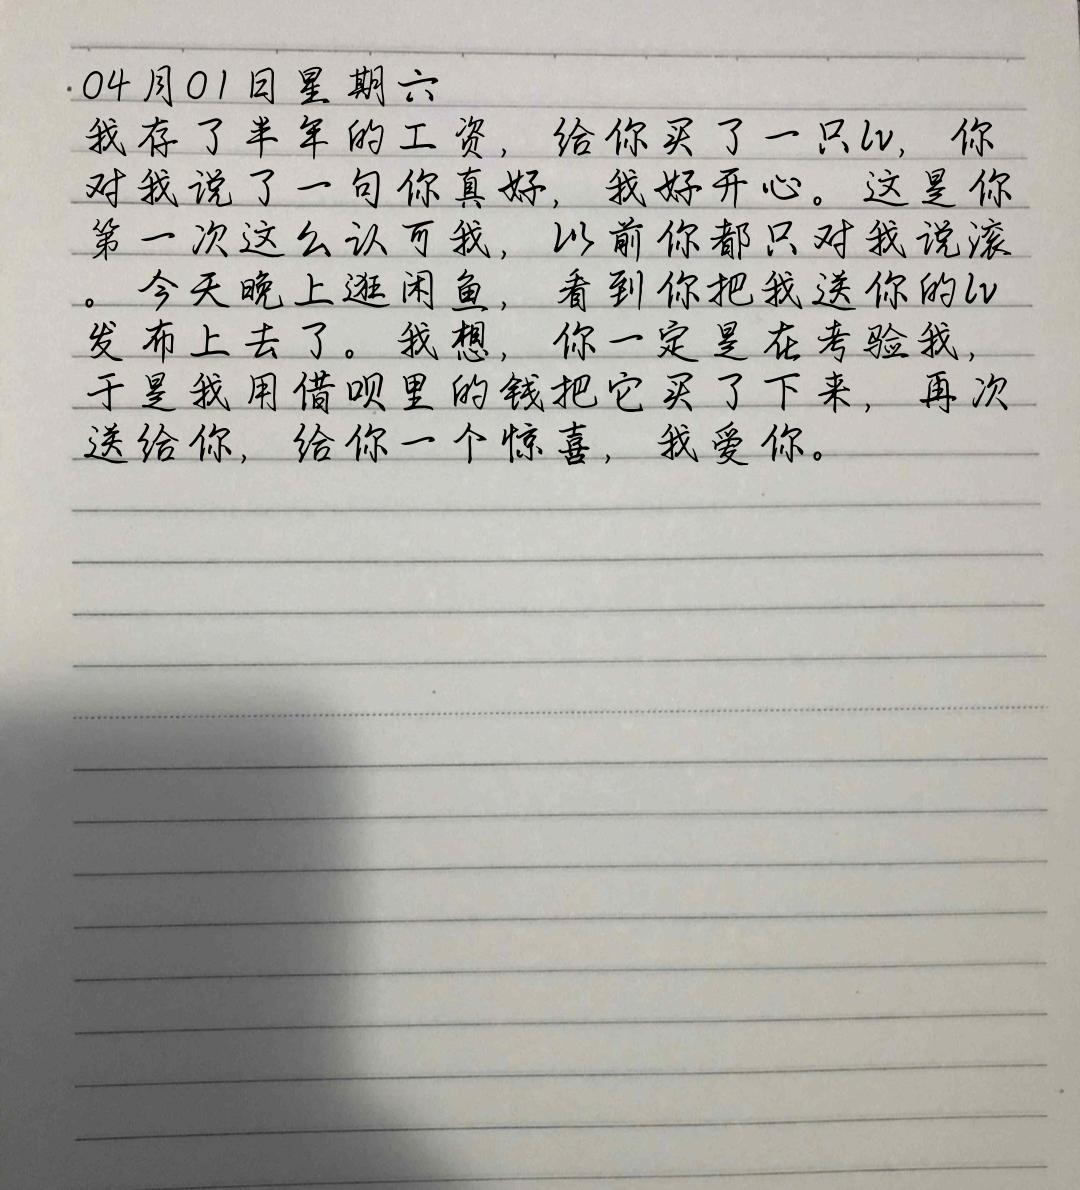 04月01日星期六
我存了半年的工资，给你买了一只lv，你
对我说了一句你真好，我好开心。这是你
第一次这么认可我，以前你都只对我说滚
。今天晚上逛闲鱼，看到你把我送你的lv
发布上去了。我想，你一定是在考验我，
于是我用借呗里的钱把它买了下来，再次
送给你，给你一个惊喜，我爱你。